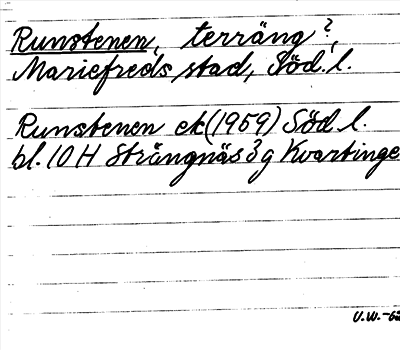 Runstenen, terräng?,
Mariefreds stad, Söd. l.
Runstenen ek (1959) Söd l.
bl. 10 H Strängnäs 3 g Kvartinge
U.W.-62